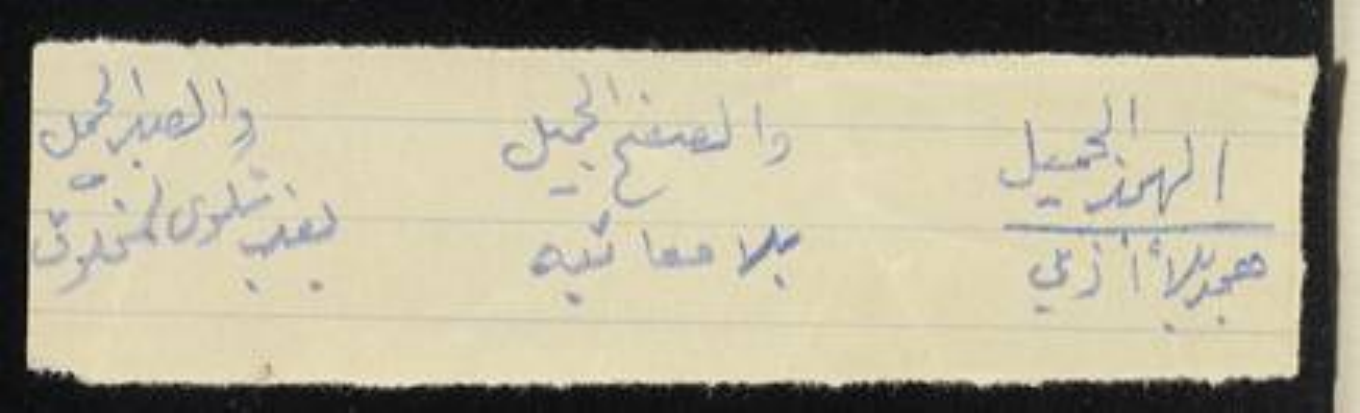 الهجر الجميل
هجر بلا أذى
والصفح الجميل
بلا معاتبه
والصبر الجميل
بغير شكوى لمخلوق